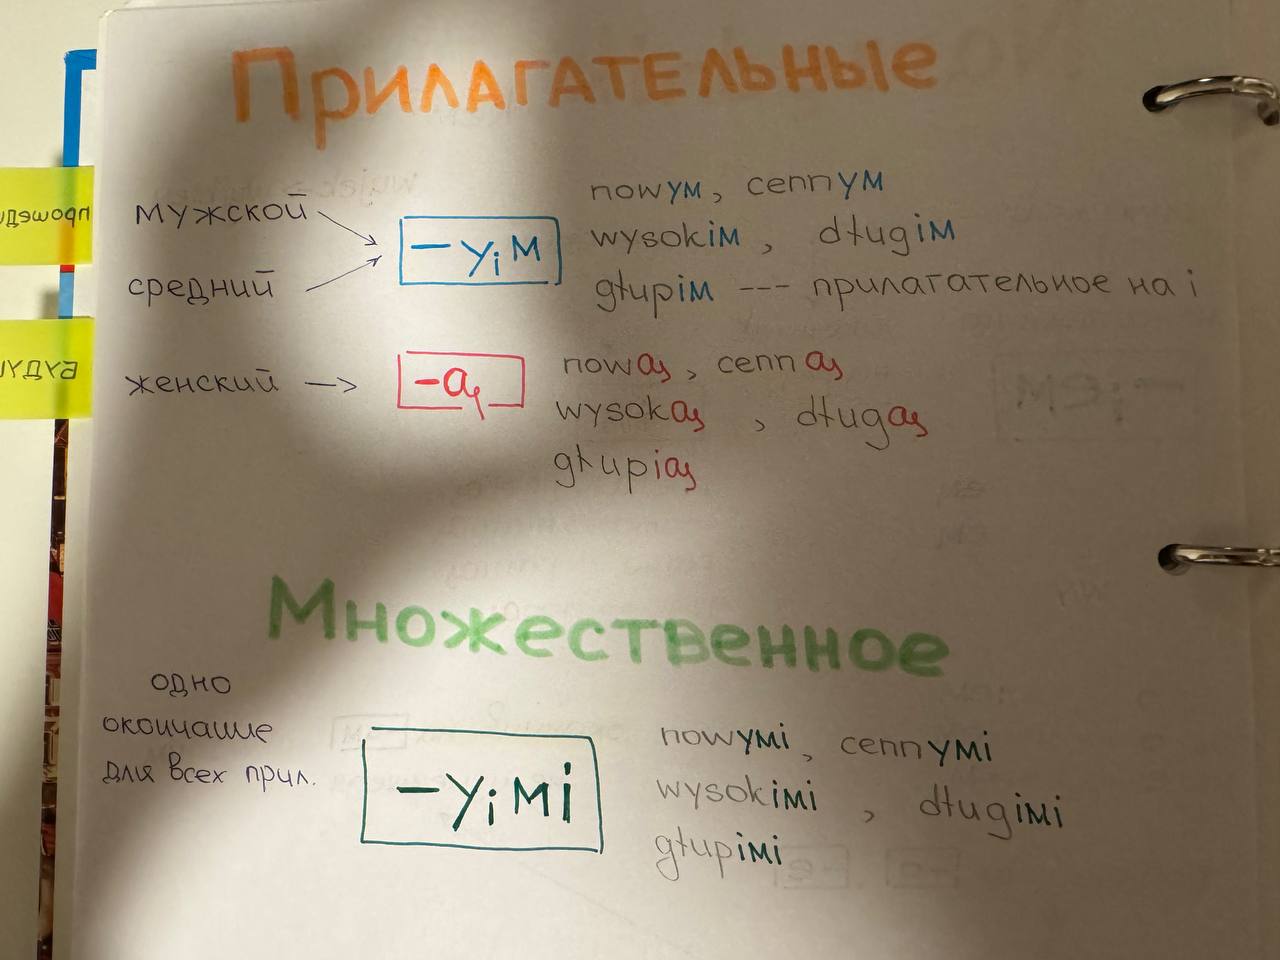 Прилагательные
мужской
средний
-yiм
nowyм, cennyм
wysokiм, długiм
głupiм --- прилагательное на i
женский ->
-ą
nową, cenną
wysoką, długą
głupią
Множественное
одно
окончание
для всех прил.
-yiмi
nowyмi, cennyмi
wysokiмi, długiмi
głupiмi